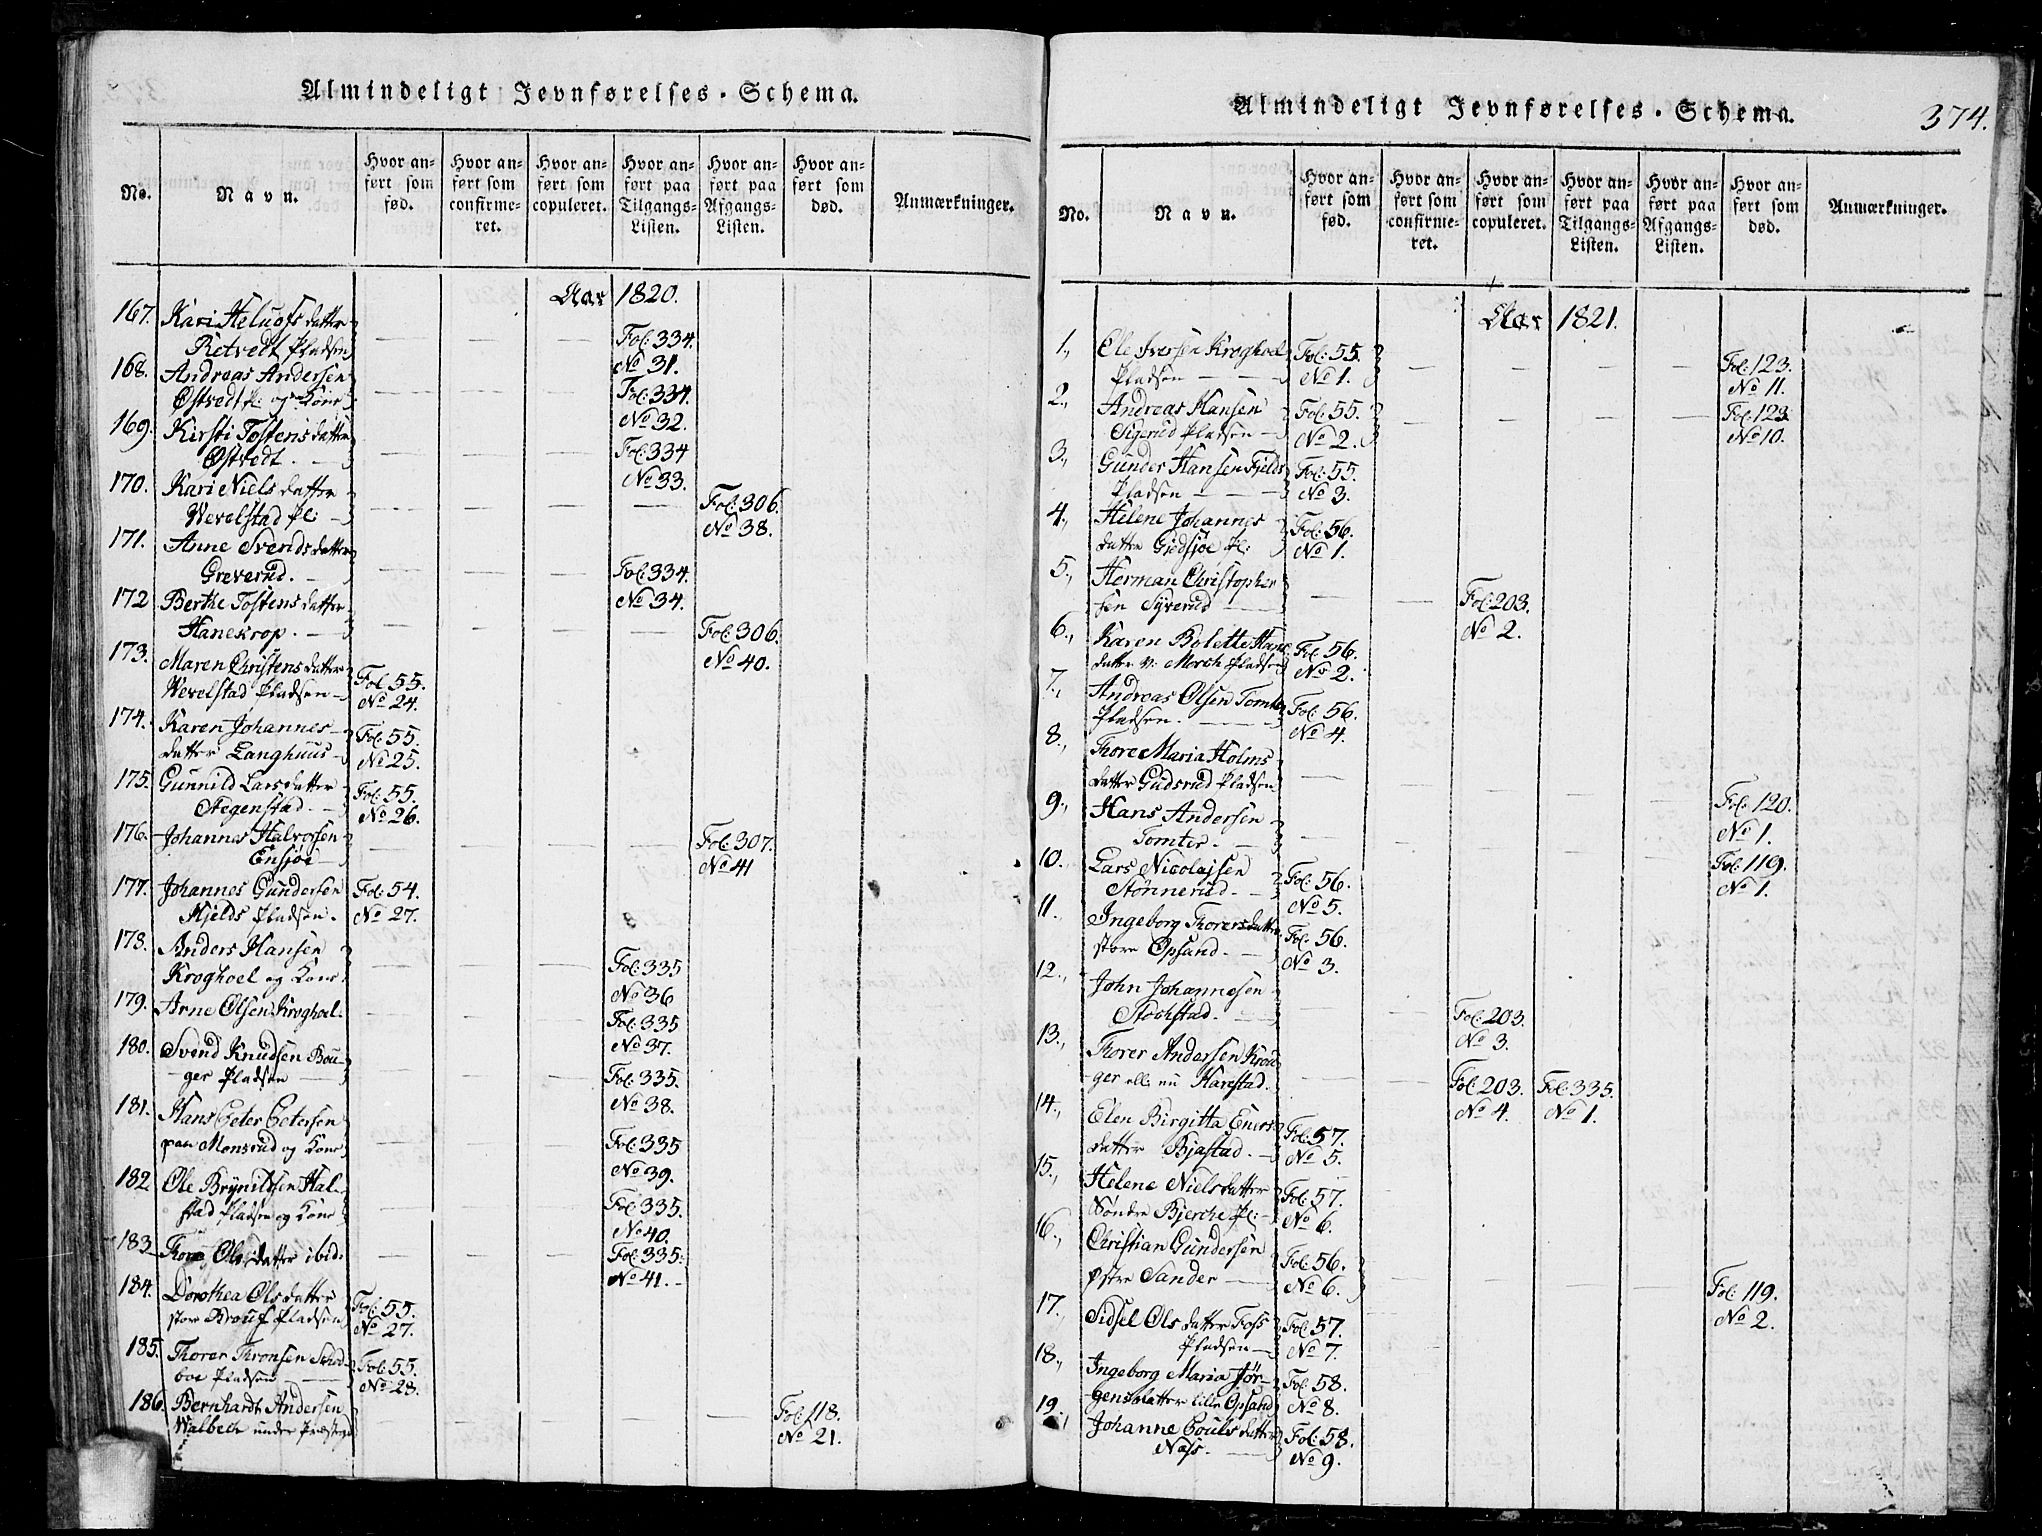 Almindeligt Jevnførelses-Schema.
No.
Navn.
Hvor an-
ført som
fød.
Hvor an-
ført som
confirme-
ret.
Hvor an-
ført som
copuleret.
Hvor an-
ført paa
Tilgangs-
Listen.
Hvor an-
ført paa
Afgangs-
Listen.
Hvor an-
ført som
død.
Anmærkninger.
Aar 1820.
167. Kari Helugsdatter
Retvedt Pladsen Fol: 334.
No 31.
168. Andreas Andersen
Østvedt Pl: og Kone Fol: 334.
No 32.
169. Kirsti Tostensdatter
Østvedt. Fol: 334
No 33.
170. Kari Nielsdatter
Wevelstad Pl: Fol: 306.
No 38.
171. Anne Svendsdatter
Greverud. Fol: 334.
No 34.
172 Berthe Tostensdatter
Hanekrop. Fol: 306.
No 40.
173. Maren Christensdatter
Wevelstad Pladsen Fol: 55.
No 24.
174. Karen Johannes-
datter Langhuus Fol: 55.
No 25.
175. Gunnild Larsdatter
Stegenstad. Fol: 55.
No 26.
176. Johannes Halvorsen
Ensjøe Fol: 307.
No 41
177. Johannes Gundersen Fol: 54.
Mjelds Pladsen. No 27.
178. Anders Hansen
Kroghoel og Kone Fol: 335
No 36
179. Arne Olsen Kroghoel. Fol: 335
No 37.
180. Svend Knudsen Bau-
ger Pladsen Fol: 335.
No 38.
181. Hans Peter Petersen
paa Monsrud og Kone Fol: 335
No 39.
182. Ole Brynildsen Hal-
stad Pladsen og Kone Fol: 335.
No 40.
183 Thore Olsdatter ibid: Fol: 335:
No 41.
184. Dorothea Olsdatter
store Krouf Pladsen Fol: 55.
No 27.
185. Thorer Thronsen Schod-
boe Pladsen Fol: 55.
No 28.
186. Bernhardt Andersen
Walbech under Præstegd Fol: 118.
No 21.
Almindeligt Jevnførelses-Schema.
374.
No.
Navn.
Hvor an-
ført som
fød.
Hvor an-
ført som
confirme-
ret.
Hvor an-
ført som
copuleret.
Hvor an-
ført paa
Tilgangs-
Listen.
Hvor an-
ført paa
Afgangs-
Listen.
Hvor an-
ført som
død.
Anmærkninger.
Aar 1821.
1., Ole Iversen Kroghoel Fol: 55. Fol: 123.
Pladsen No 1. No 11.
2., Andreas Hansen Fol: 55. Fol: 123
Sigerud Pladsen No 2. No 10.
3., Gunder Hansen Fjelds Fol: 55.
Pladsen No 3.
4., Helene Johannes Fol: 56.
datter Gudsjøe Pl: No 1.
5., Herman Christopher
sen Syverud Fol: 203.
No 2.
6., Karen Bolette Hans Fol: 56.
datter v: Morch Pladsen No 2.
7., Andreas Olsen Tomter Fol: 56.
Pladsen. No 4.
8., Thore Maria Holms-
datter Gudsrud Pladsen Fol: 120.
No 1.
9., Hans Andersen
Tomter. Fol: 119.
No 1.
10. Lars Nicolajsen Fol: 56.
Stønnerud. No 5.
11. Ingeborg Thorersdatter Fol: 56.
store Opsand. No 3.
12., John Johannesen
Stochstad. Fol: 203.
No 3.
13., Thorer Andersen Krou-
ger elle nu Harestad. Fol: 203. Fol: 335.
No 4. No 1.
14., Elen Birgitta Eners Fol: 57.
datter Bjastad. No 5.
15., Helene Nielsdatter Fol: 57.
Søndre Bjerche Pl: No 6.
16., Christian Gundersen Fol: 56.
østre Sander No 6. Fol: 119.
No 2.
17., Sidsel Olsdatter Foss Fol: 57.
Pladsen No 7.
18., Ingeborg Maria Jør- Fol: 58.
gensdatter lille Opsand No 8.
19. Johanne Poulsdatter Fol: 58.
Næss. No 9.